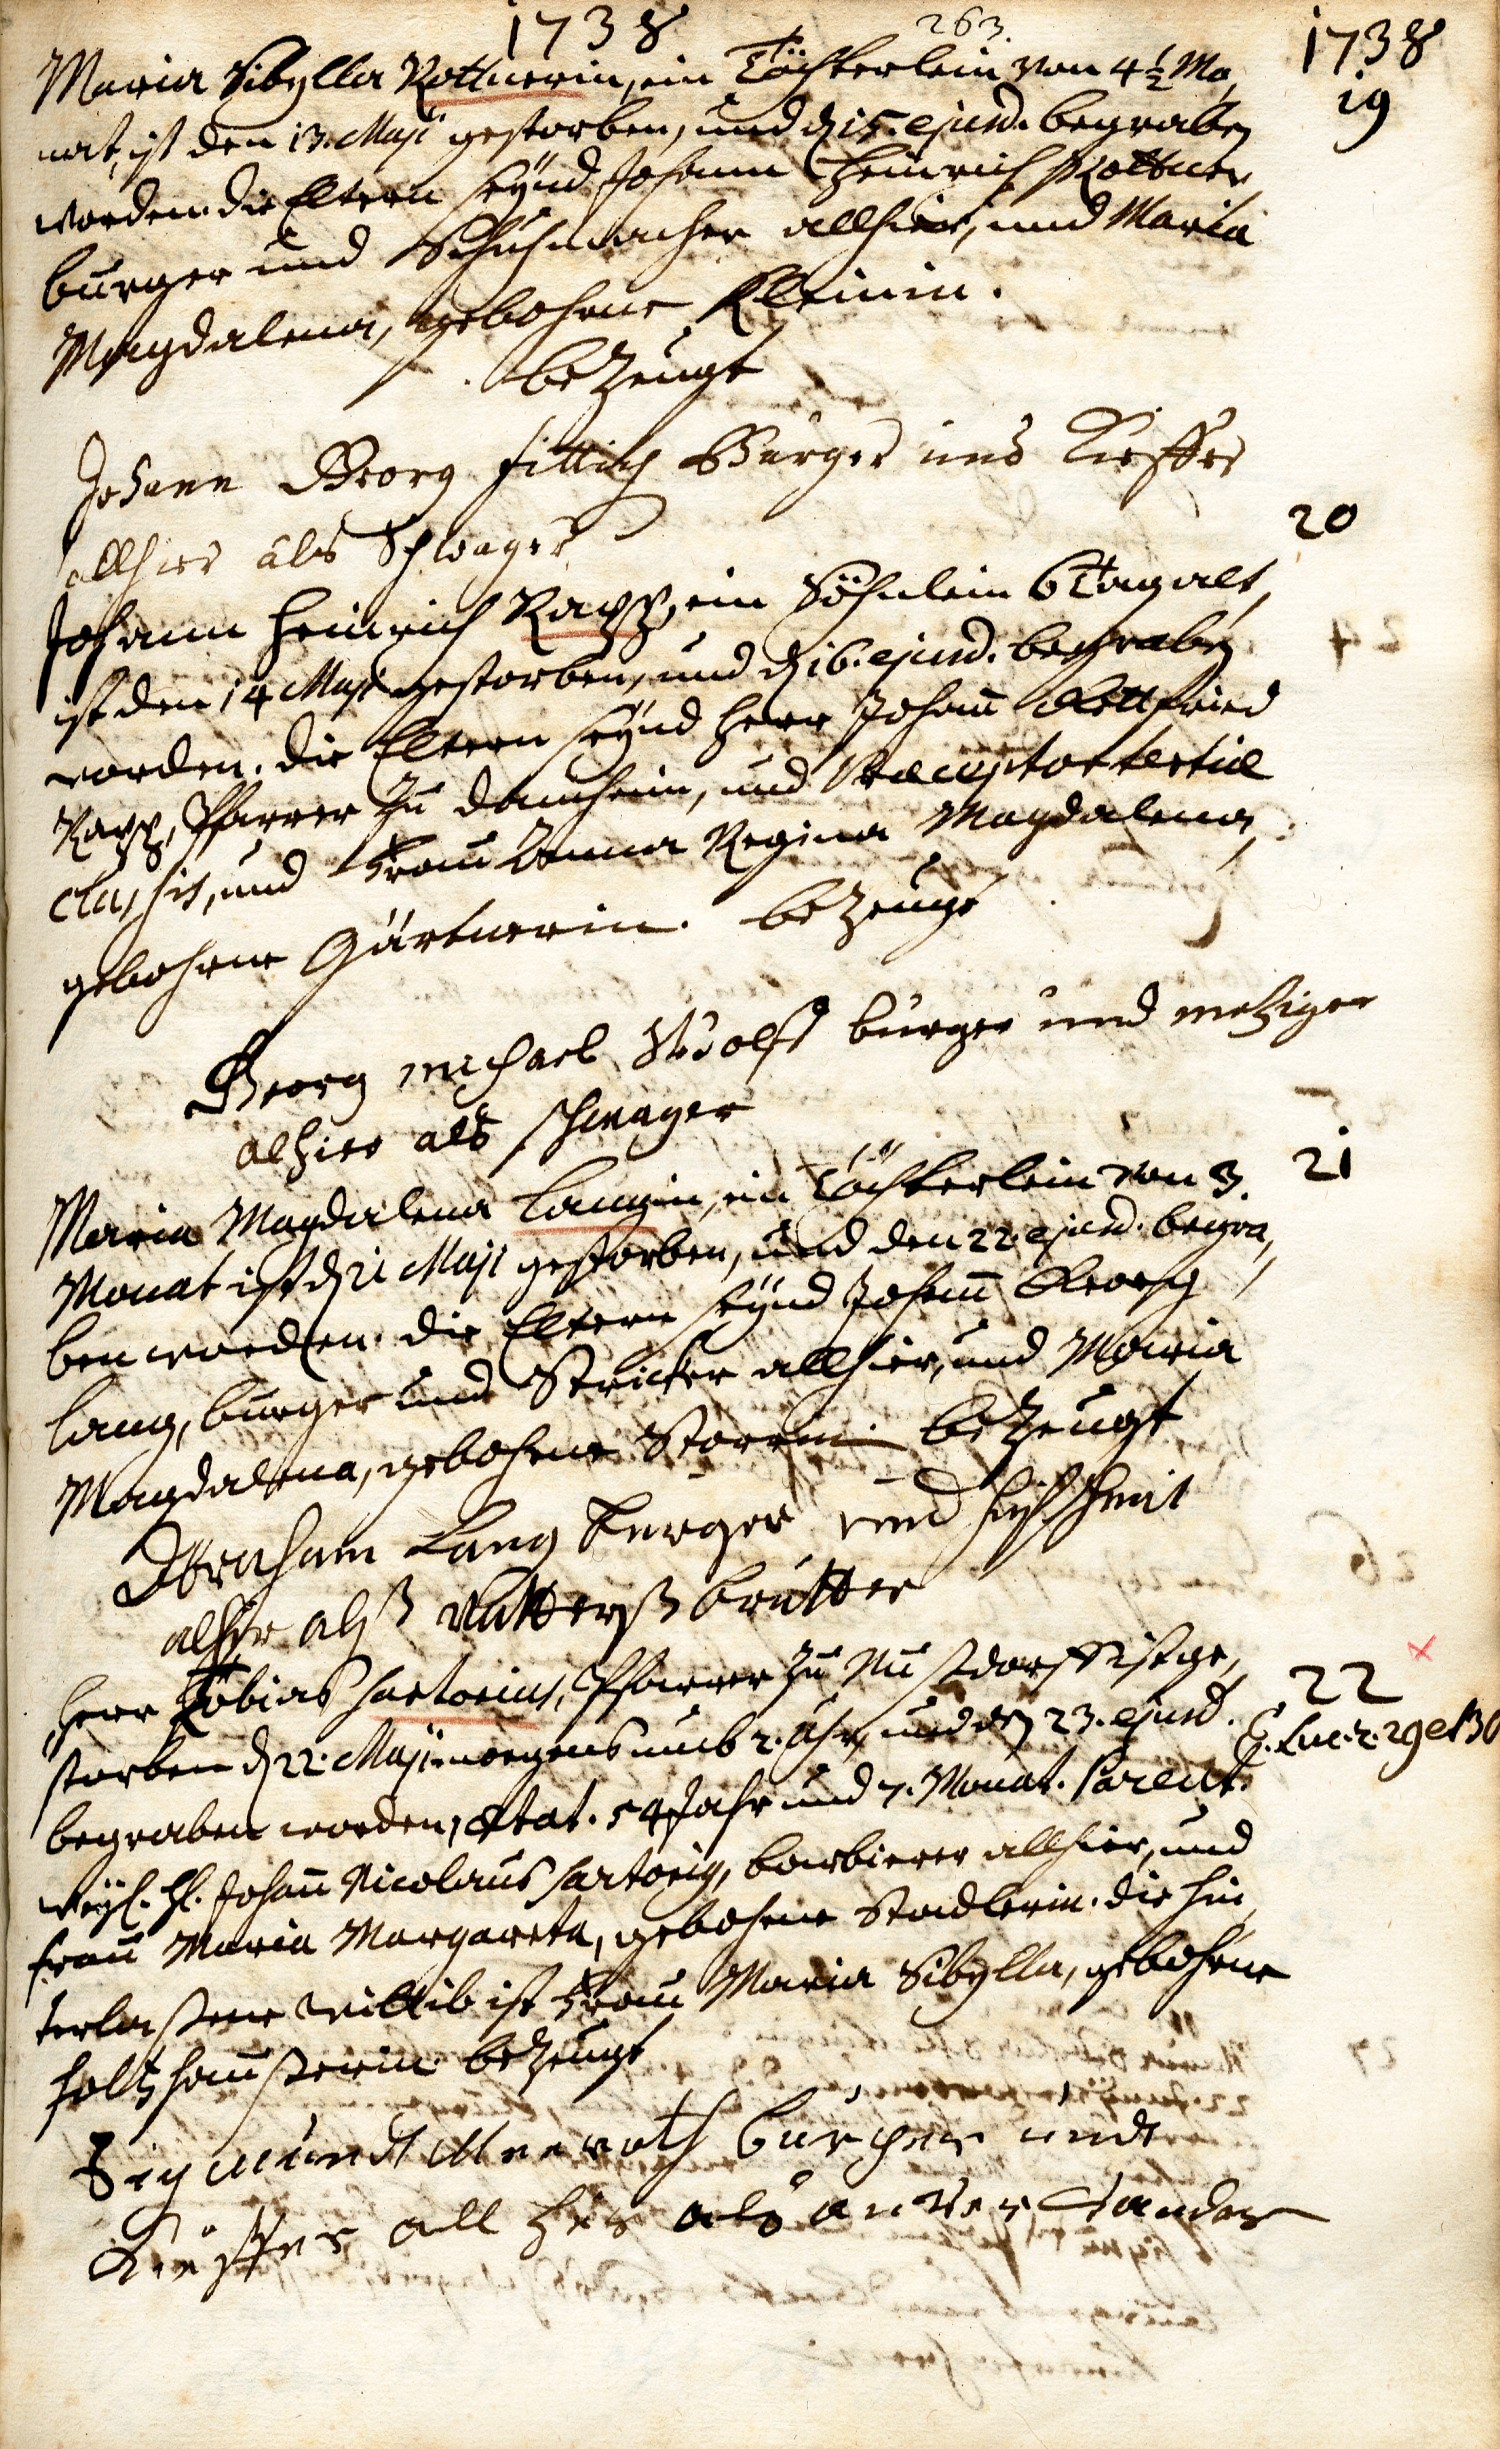 1738
263.
1738
Maria Sibylla Rottnerin, ein Töchterlein von 4½ Mo,
19
nat, ist den 13. Maji gestorben, und d 15. ejusd. begraben
worden. die Eltern seynd Johann Heinrich Rottner,
burger und Schuhmacher allhier, und Maria
Magdalena, gebohrne Kleinin.
bezeugt
Johann Georg Fittich Burger und Kieffer
allhier als Schwager
20
Johann Heinrich Rapp, ein Söhnlein 6 Tag alt,
ist den 14 Maji gestorben, und d 16. ejusd. begraben
worden. die Eltern seynd Herr Johann Gottfried
Rapp, Pfarrer zu Dannheim, und Præceptor tertiæ
classis, und Frau Anna Regina Magdalena,
gebohrne Gärtnerin. bezeugt
Georg Michael Wolff burger und metziger
alhier als schwager
21
Maria Magdalena Langin, ein Töchterlein von 3.
Monat ist d 21 Maji gestorben, und den 22. ejusd. begra,
ben worden. die Eltern seynd Johann Georg
Lang, burger und Stricker allhier, und Maria
Magdalena, gebohrne Storrin. bezeugt
Abraham Lang burger und hufschmit
alhir alß Vatterß brutter
Herr Tobias Sartorius, Pfarrer zu Nußdorff ist ge,
22
storben d 22. Maji morgens umb 2. Uhr, und den 23. ejusd.
E. Luc. 2. 29 et 30
begraben worden, Ætat. 54 Jahr und 7. Monat. Parent.
weyl. H. Johann Nicolaus Sartorig, barbierer allhier, und
Frau Maria Margareta, gebohrne Stadlerin. die hin,
terlaßene Wittib ist Frau Maria Sibylla, gebohrne
Holtzhaußerin. bezeugt
Sigmundt burger undt
Kieffer all hier als anver